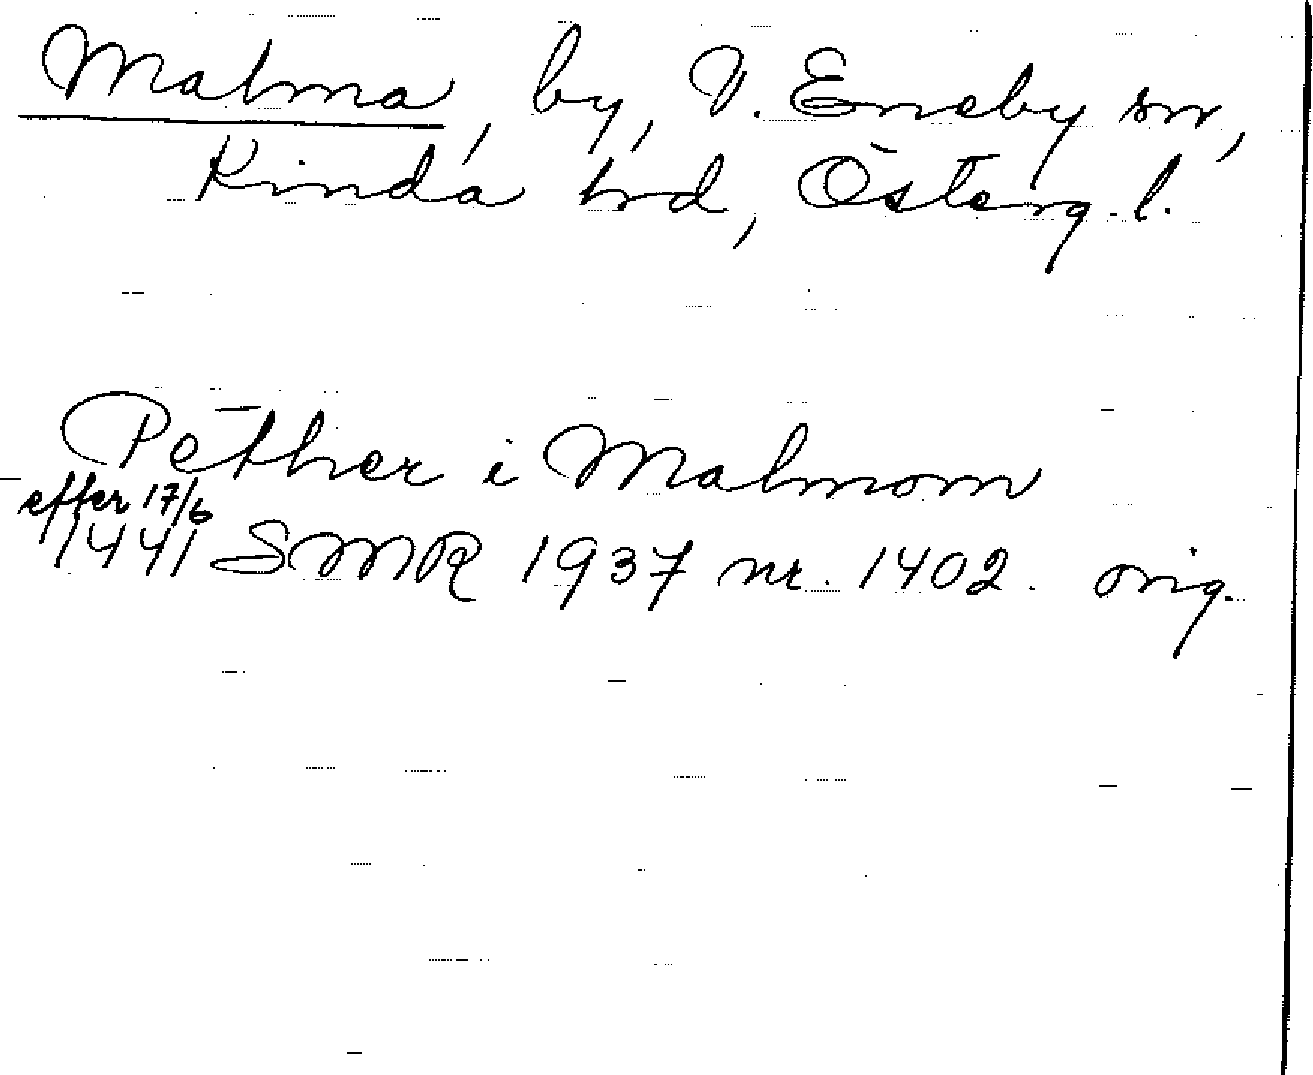 Malma, by, V. Eneby sn,
Kinda hd, Österg. l.
Pether i Malmom
efter 17/6
1441 SMR 1937 nr. 1402. orig.